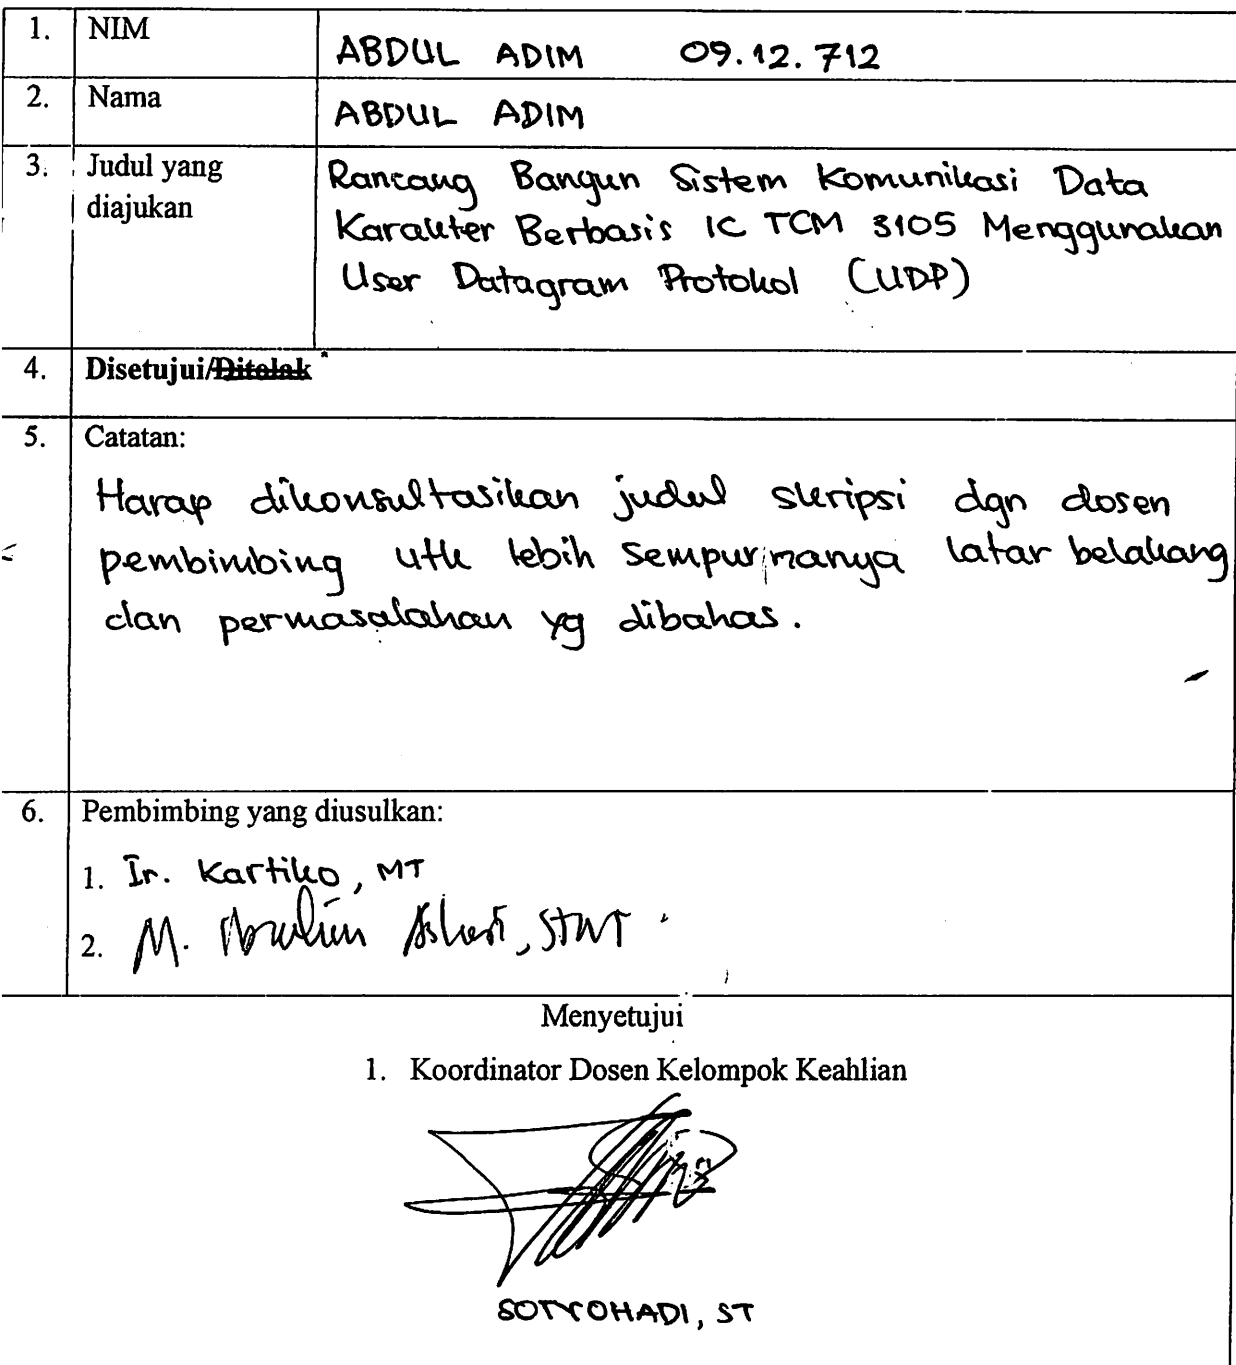 1. NIM ABDUL ADIM 09.12.712
2. Nama ABDUL ADIM
3. Judul yang Rancang Bangun Sistem Komunikasi Data
diajukan Karakter Berbasis IC TCM 3105 Menggunakan
User Datagram Protokol (UDP)
4. Disetujui/Ditolak *
5. Catatan:
Harap dikonsultasikan judul skripsi dgn dosen
pembimbing utk lebih sempurnanya latar belakang
dan permasalahan yg dibahas.
6. Pembimbing yang diusulkan:
1. Ir. Kartiko, MT
2. M. Ibrahim Ashari, ST MT
Menyetujui
1. Koordinator Dosen Kelompok Keahlian
SOTYOHADI, ST